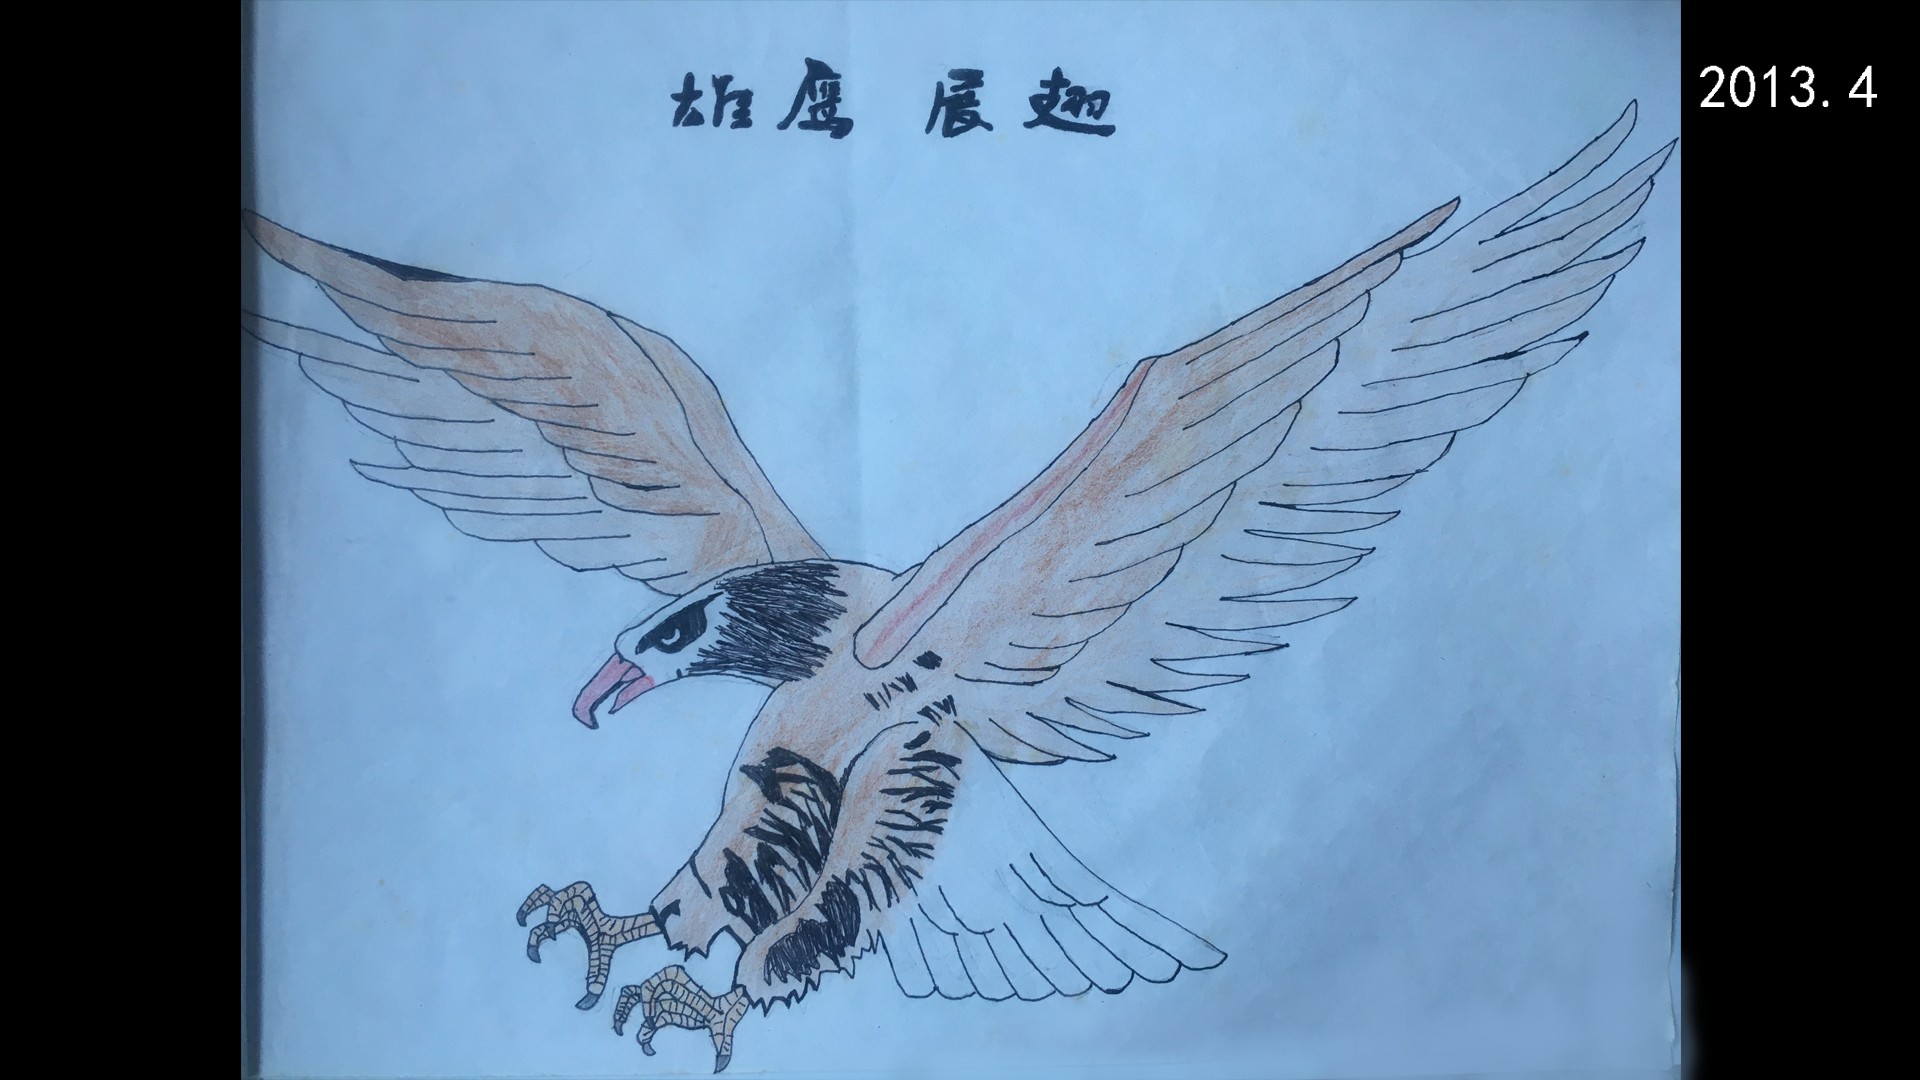 雄鹰 展翅
2013.4